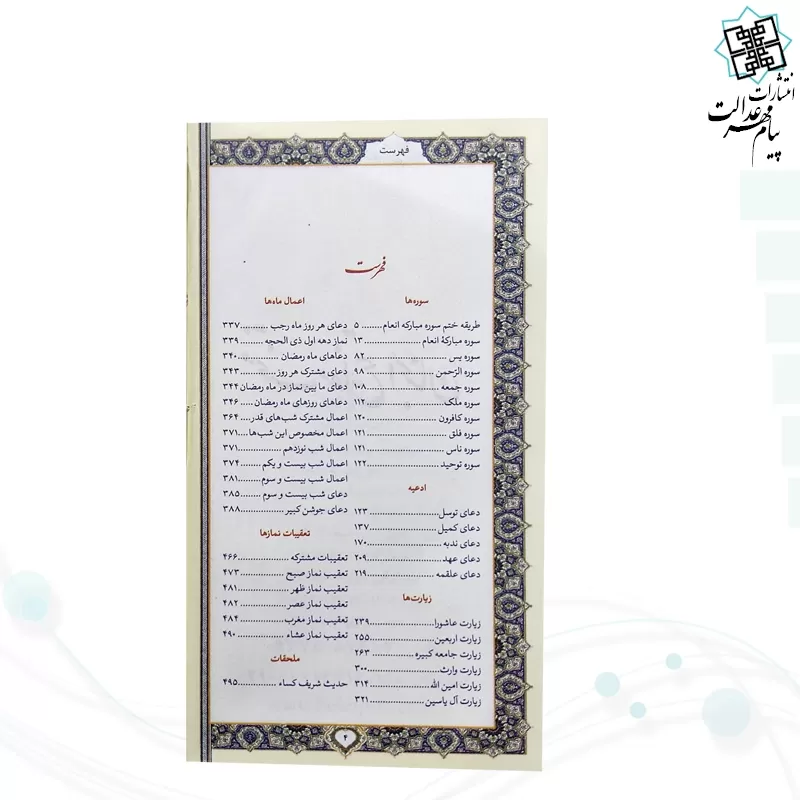 انتشارات
پیام مهر عدالت
فهرست
فهرست
سوره‌ها
طریقه ختم سوره مبارکه انعام........ ۵
سوره مبارکهٔ انعام..................... ۱۳
سوره یس ............................ ۸۲
سوره الرّحمن......................... ۹۸
سوره جمعه......................... ۱۰۸
سوره ملک.......................... ۱۱۲
سوره کافرون ...................... ۱۲۰
سوره فلق .......................... ۱۲۱
سوره ناس .......................... ۱۲۱
سوره توحید ........................ ۱۲۲
ادعیه
دعای توسل......................... ۱۲۳
دعای کمیل ........................ ۱۳۷
دعای ندبه .......................... ۱۷۰
دعای عهد .......................... ۲۰۹
دعای علقمه ....................... ۲۱۹
زیارت‌ها
زیارت عاشورا....................... ۲۳۹
زیارت اربعین........................ ۲۵۵
زیارت جامعه کبیره ................ ۲۶۳
زیارت وارث......................... ۳۰۰
زیارت امین الله..................... ۳۱۴
زیارت آل یاسین .................... ۳۲۱
اعمال ماه‌ها
دعای هر روز ماه رجب ........... ۳۳۷
نماز دهه اول ذی الحجه .......... ۳۳۹
دعاهای ماه رمضان ............... ۳۴۰
دعای مشترک هر روز............. ۳۴۳
دعای ما بین نماز در ماه رمضان ۳۴۴
دعاهای روزهای ماه رمضان...... ۳۴۶
اعمال مشترک شب‌های قدر.... ۳۶۴
اعمال مخصوص این شب‌ها..... ۳۷۱
اعمال شب نوزدهم ............... ۳۷۱
اعمال شب بیست و یکم ........ ۳۷۴
اعمال شب بیست و سوم ........ ۳۸۱
دعای شب بیست و سوم ......... ۳۸۵
دعای جوشن کبیر ................ ۳۸۸
تعقیبات نمازها
تعقیبات مشترکه .................. ۴۶۶
تعقیب نماز صبح .................. ۴۷۳
تعقیب نماز ظهر ................... ۴۸۱
تعقیب نماز عصر .................. ۴۸۲
تعقیب نماز مغرب................. ۴۸۴
تعقیب نماز عشاء ................. ۴۹۰
ملحقات
حدیث شریف کساء .............. ۴۹۵
۴